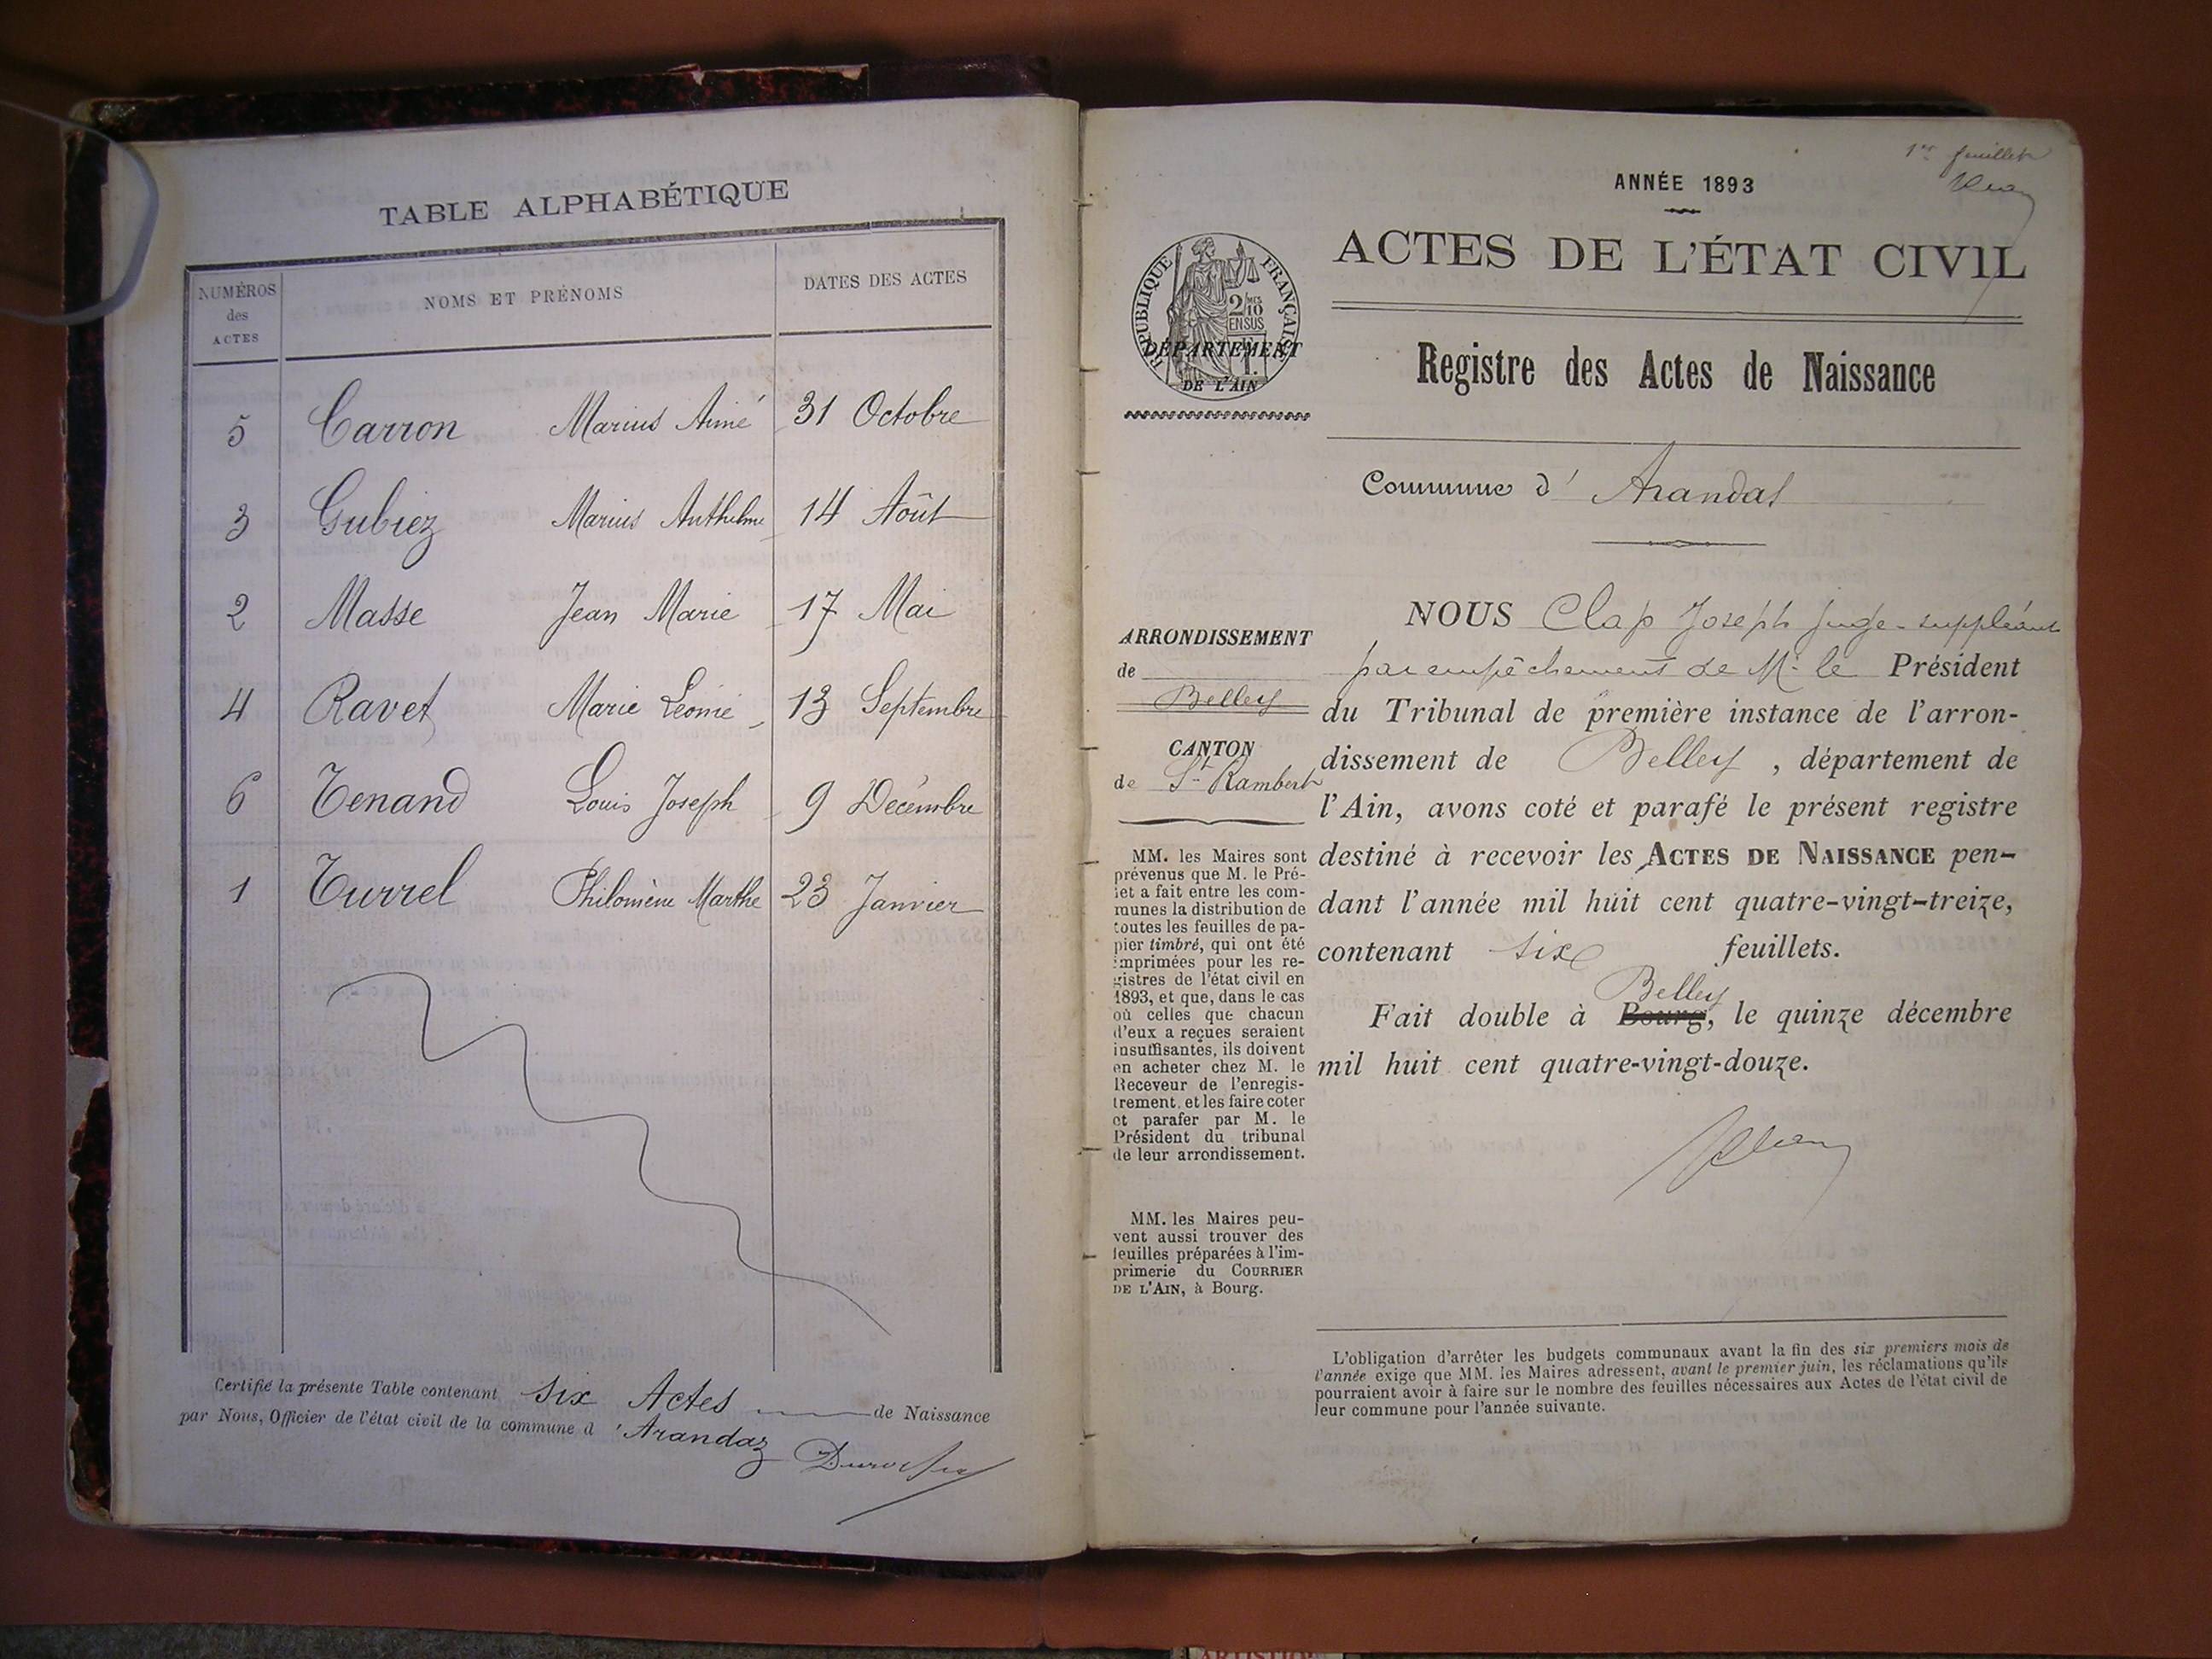 TABLE ALPHABÉTIQUE
NUMÉROS des ACTES
NOMS ET PRÉNOMS
DATES DES ACTES
5 Carron Marius Aimé 31 Octobre
3 Gubiez Marius Anthelme 14 Août
2 Masse Jean Marie 17 Mai
4 Ravet Marie Léonie 13 Septembre
6 Tenand Louis Joseph 9 Décembre
1 Turrel Philomène Marthe 23 Janvier
Certifié la présente Table contenant six Actes de Naissance
par Nous, Officier de l'état civil de la commune d'Arandaz
1er feuillet
ANNÉE 1893
ACTES DE L'ÉTAT CIVIL
RÉPUBLIQUE FRANÇAISE
2/10
EN SUS
DÉPARTEMENT
DE L'AIN
Registre des Actes de Naissance
Commune d' Arandas
ARRONDISSEMENT
de
Belley
CANTON
de St Rambert
MM. les Maires sont
prévenus que M. le Pré-
fet a fait entre les com-
munes la distribution de
toutes les feuilles de pa-
pier timbré, qui ont été
imprimées pour les re-
gistres de l'état civil en
1893, et que, dans le cas
où celles que chacun
d'eux a reçues seraient
insuffisantes, ils doivent
en acheter chez M. le
Receveur de l'enregis-
trement, et les faire coter
et parafer par M. le
Président du tribunal
de leur arrondissement.
MM. les Maires peu-
vent aussi trouver des
feuilles préparées à l'im-
primerie du COURRIER
DE L'AIN, à Bourg.
NOUS Clap Joseph juge-suppléant
par empêchement de M. le Président
du Tribunal de première instance de l'arron-
dissement de Belley, département de
l'Ain, avons coté et parafé le présent registre
destiné à recevoir les ACTES DE NAISSANCE pen-
dant l'année mil huit cent quatre-vingt-treize,
contenant six feuillets.
Belley
Fait double à Bourg, le quinze décembre
mil huit cent quatre-vingt-douze.
L'obligation d'arrêter les budgets communaux avant la fin des six premiers mois de
l'année exige que MM. les Maires adressent, avant le premier juin, les réclamations qu'ils
pourraient avoir à faire sur le nombre des feuilles nécessaires aux Actes de l'état civil de
leur commune pour l'année suivante.